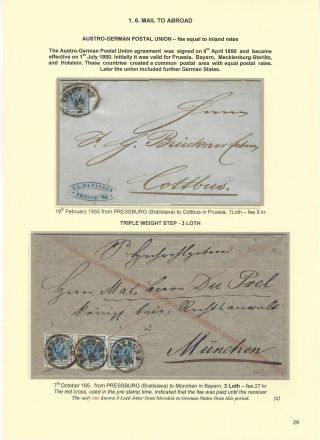 1. 6. MAIL TO ABROAD
AUSTRO-GERMAN POSTAL UNION – fee equal to inland rates
The Austro-German Postal Union agreement was signed on 6th April 1850 and became
effective on 1st July 1850. Initially it was valid for Prussia, Bayern, Mecklenburg-Sterlitz,
and Holstein. These countries created a common postal area with equal postal rates.
Later the union included further German States.
Herrn
Cottbus.
19th February 1855 from PRESSBURG (Bratislava) to Cottbus in Prussia, 1Loth – fee 9 kr
TRIPLE WEIGHT STEP - 3 LOTH
Sr Hochwohlgeboren
Herrn Baron Du Prel
königl Rechtsanwalt
München
7th October 185. from PRESSBURG (Bratislava) to München in Bayern, 3 Loth – fee 27 kr
The red cross, used in the pre stamp time, indicated that the fee was paid until the receiver
The only one known 3 Loth letter from Slovakia to German States from this period.
(c)
29